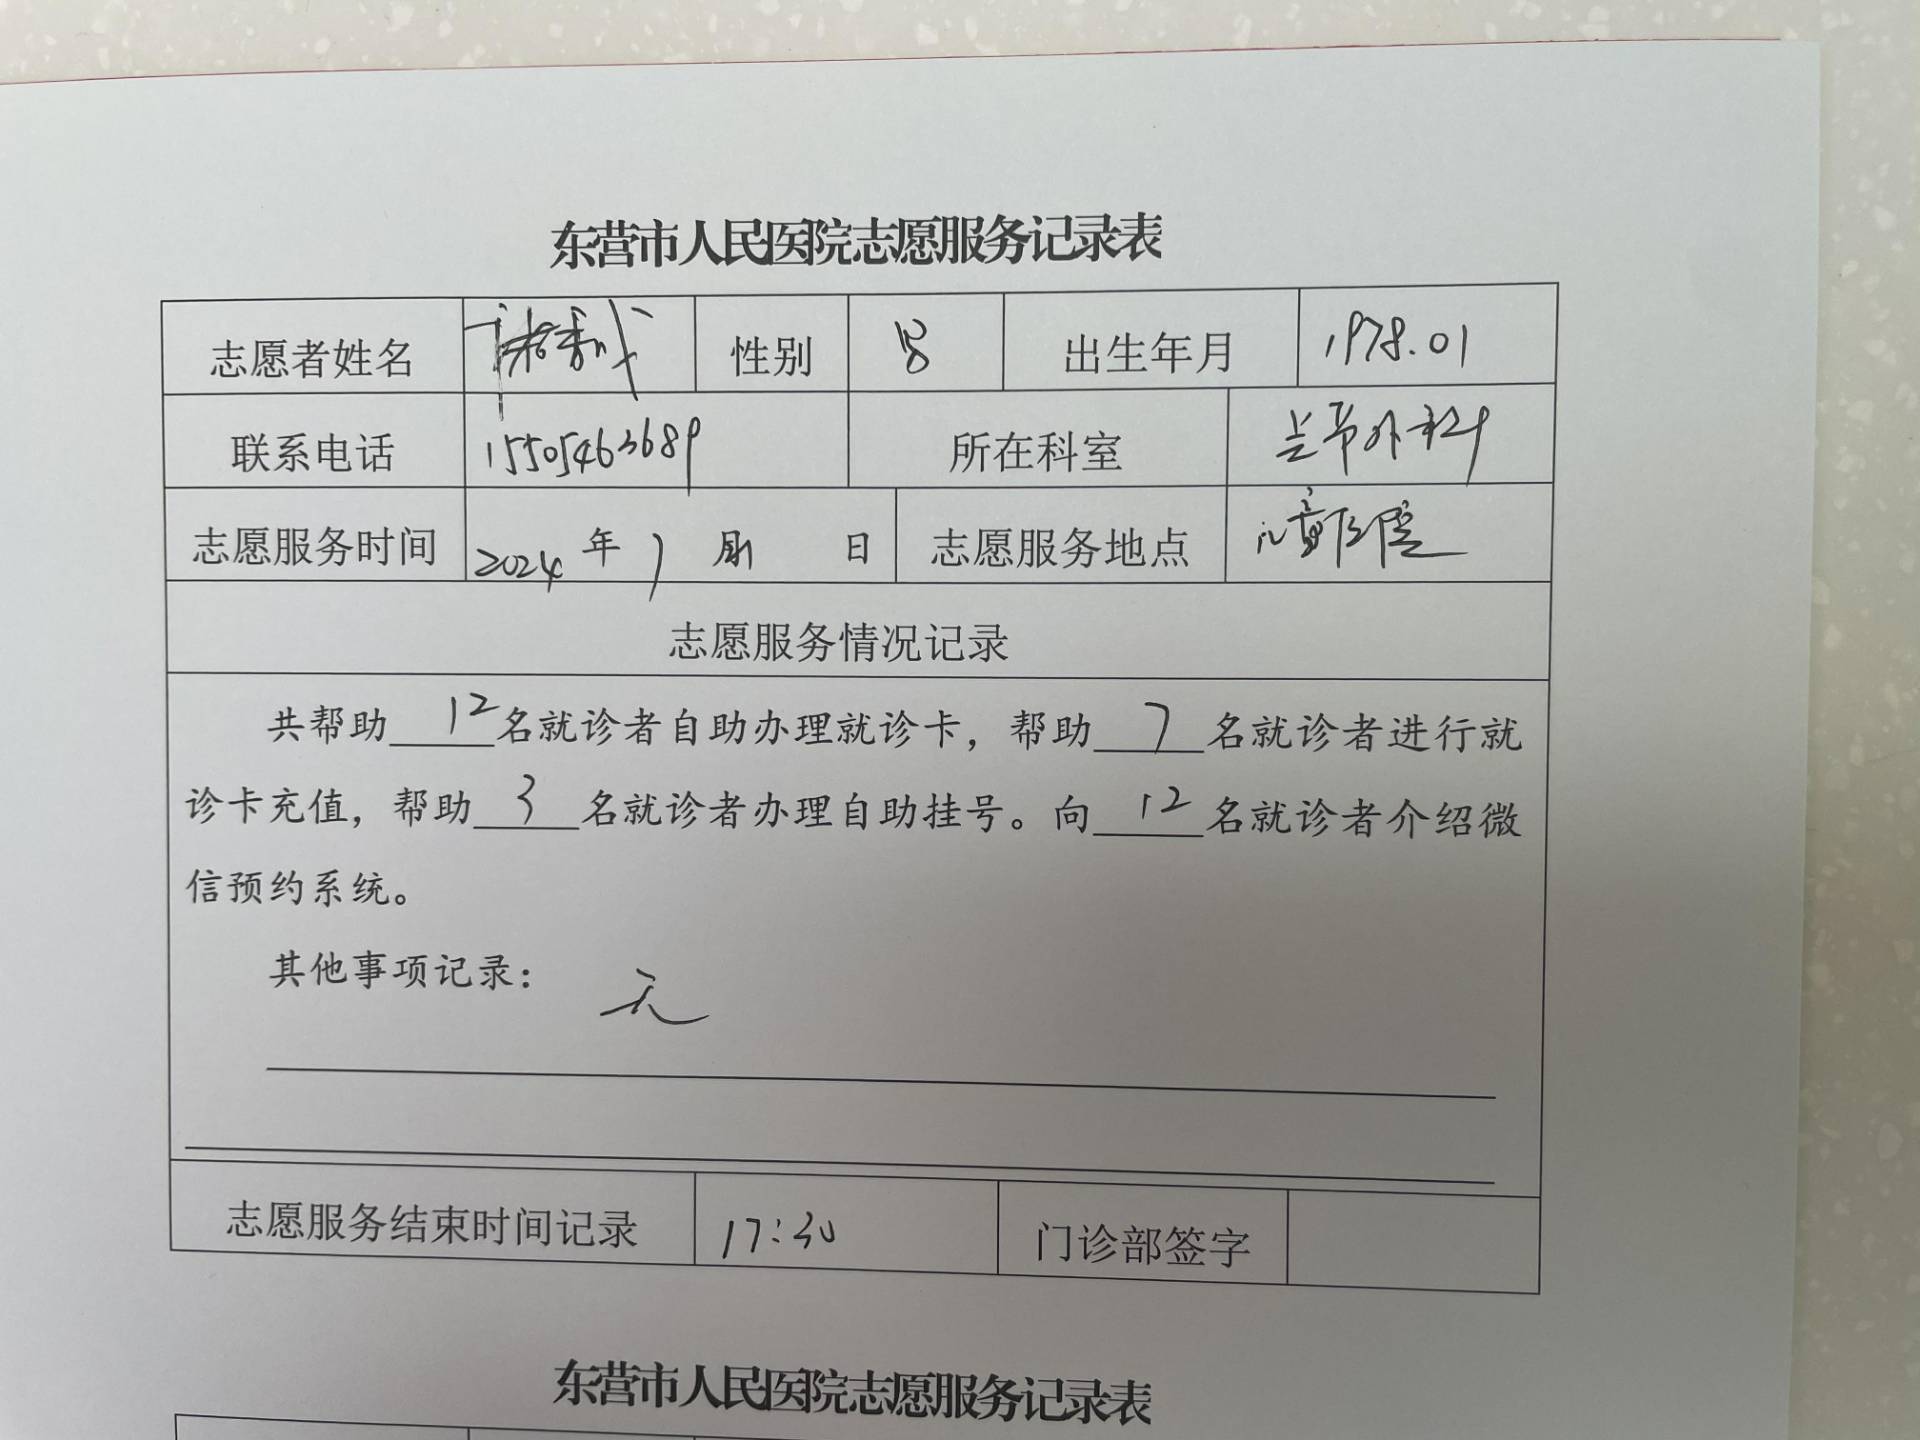 东营市人民医院志愿服务记录表
志愿者姓名 性别 男 出生年月 1978.01
联系电话 15505463689 所在科室 外科
志愿服务时间 2024年 月 日 志愿服务地点
志愿服务情况记录
共帮助12名就诊者自助办理就诊卡，帮助7名就诊者进行就
诊卡充值，帮助3名就诊者办理自助挂号。向12名就诊者介绍微
信预约系统。
其他事项记录： 无
志愿服务结束时间记录 17:30 门诊部签字
东营市人民医院志愿服务记录表